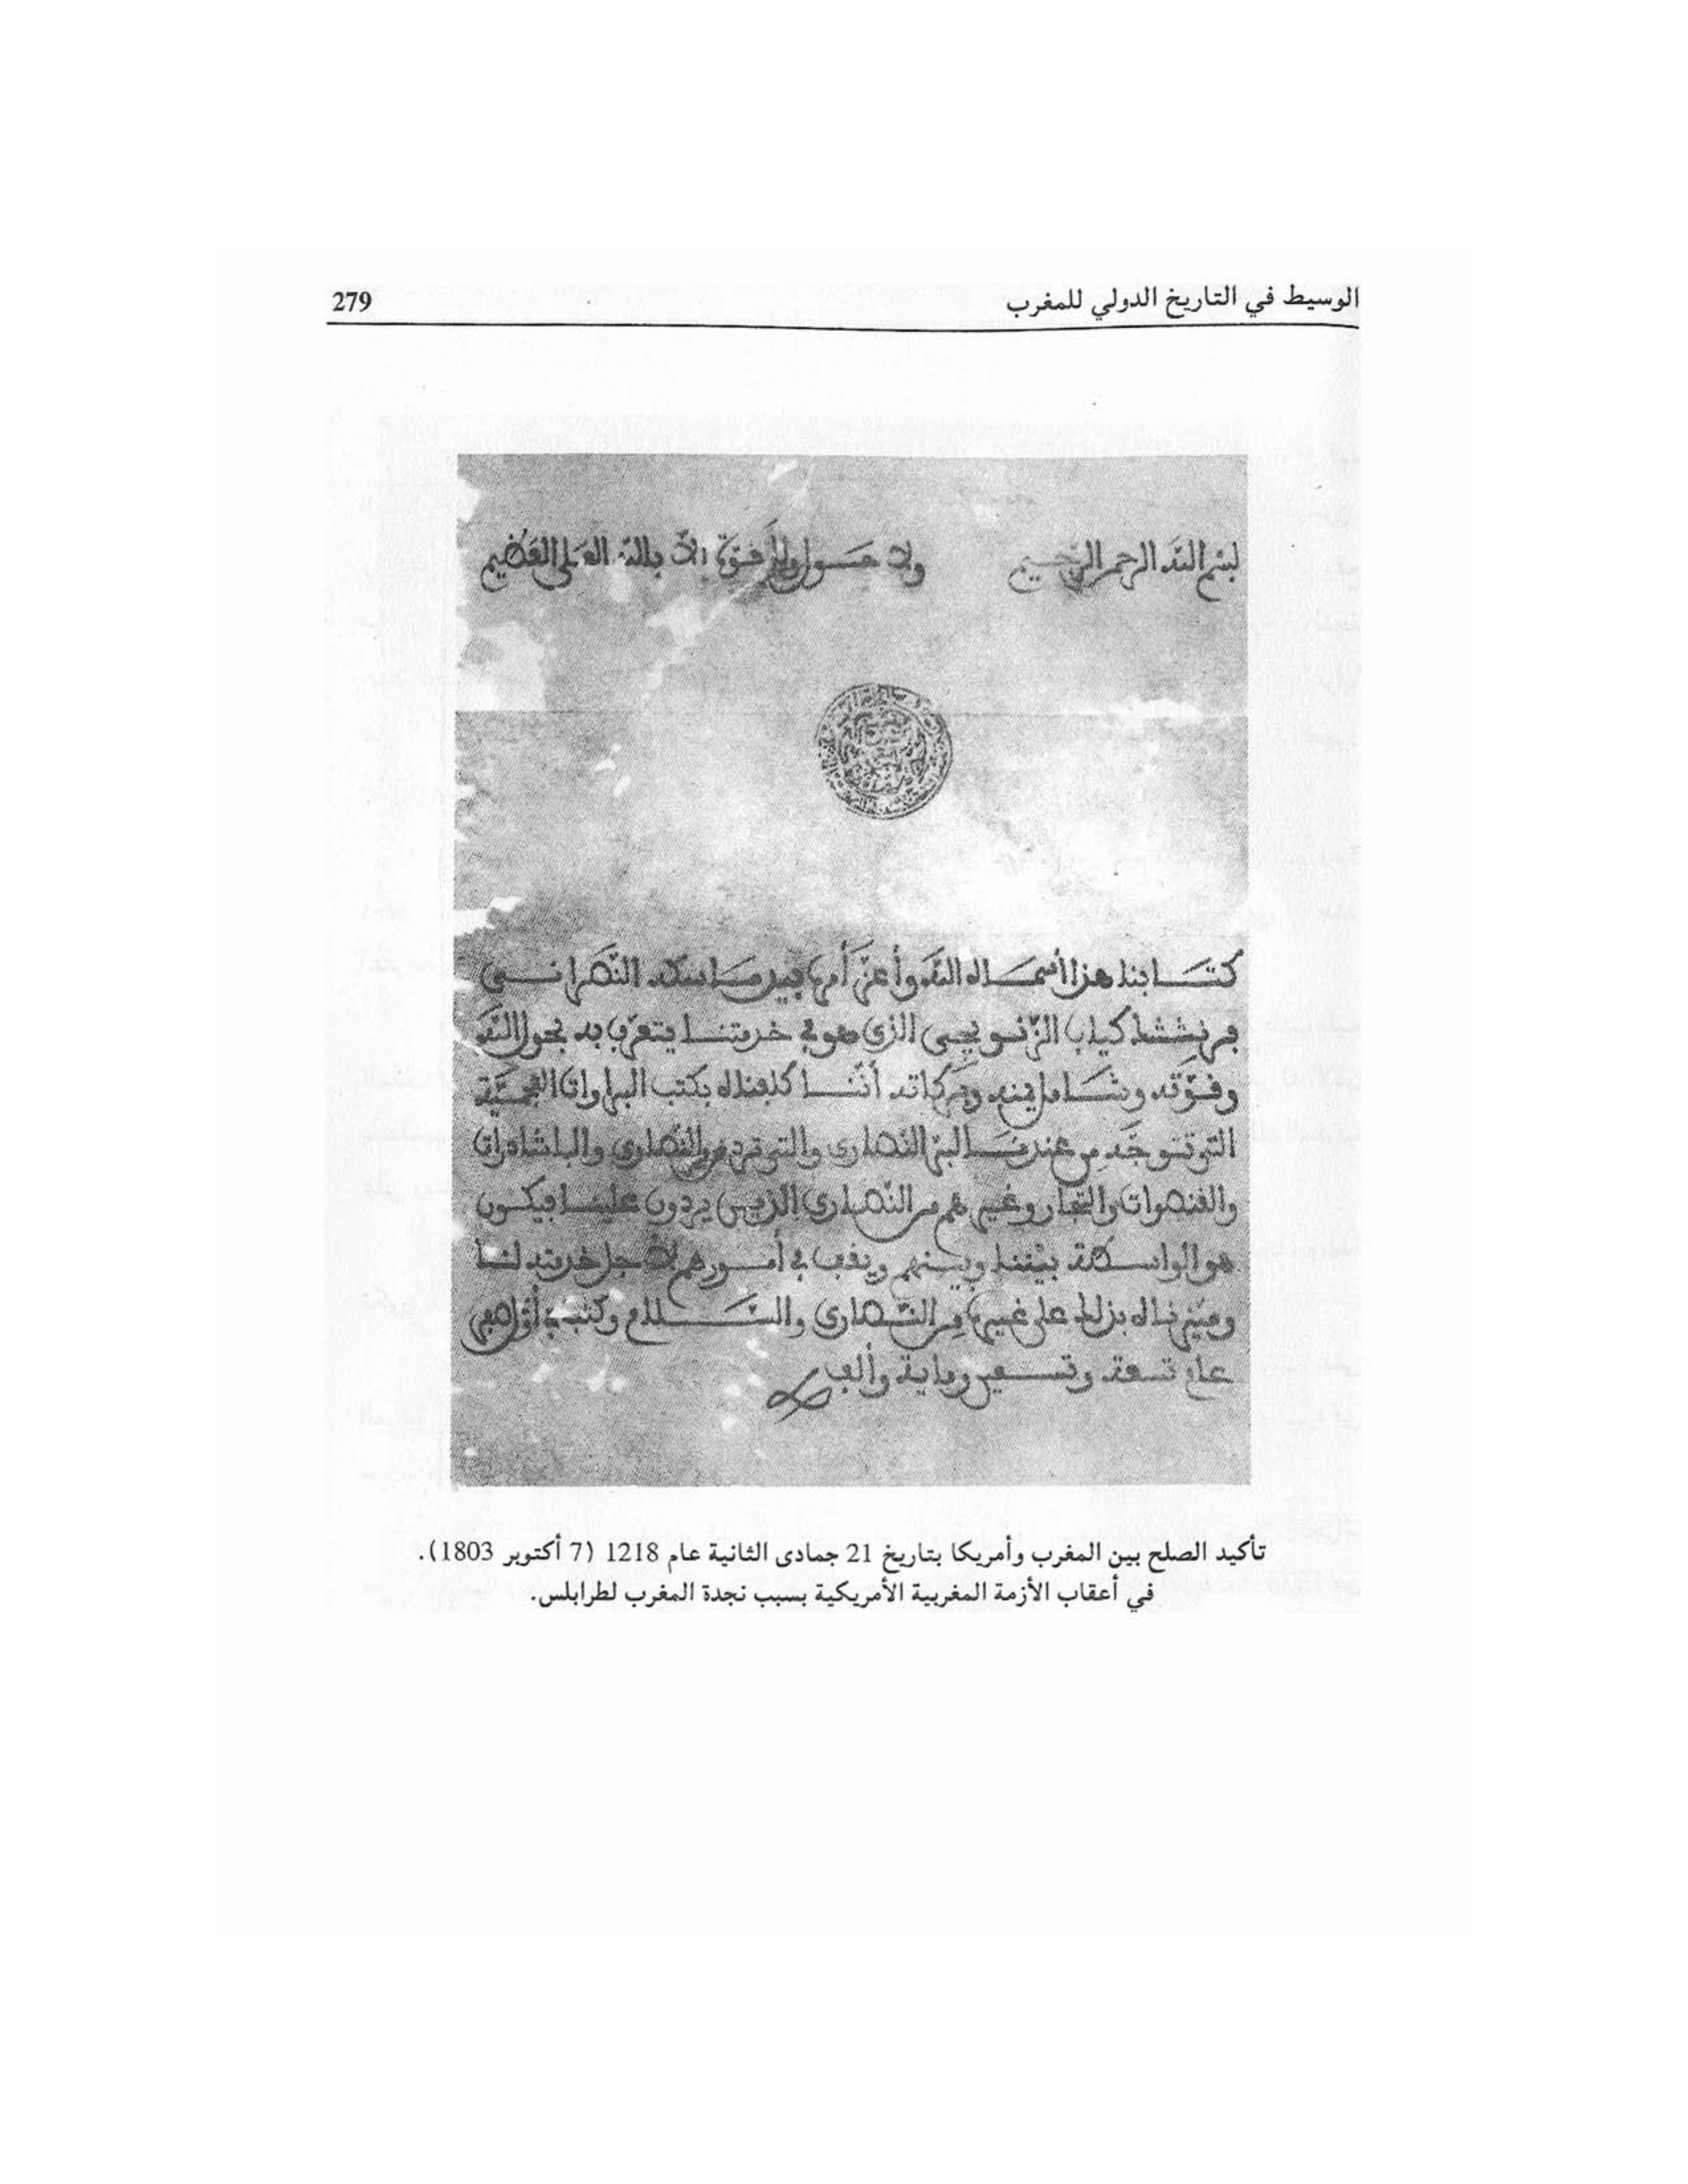 الوسيط في التاريخ الدولي للمغرب
279
بسم الله الرحمن الرحيم ولا حول ولا قوة إلا بالله العلي العظيم
كتابنا هذا أسماه الله وأعز أمره بيد ماسكه النصراني
الذي هو في خدمتنا يتعرف به بحول الله
وقوته وشامل يمنه وبركاته أننا كلفناه بكتب البراوات العجمية
التي تتوجه من عندنا لبر النصارى والتي ترد من النصارى والباشادرات
والقنصوات والتجار وغيرهم من النصارى الذين يردون علينا فيكون
هو الواسطة بيننا وبينهم ويقف في أمورهم لأجل خدمته لنا
وميزناه بذلك على غيره من النصارى والسلام وكتب في
عام تسعة وتسعين وماية وألف
تأكيد الصلح بين المغرب وأمريكا بتاريخ 21 جمادى الثانية عام 1218 (7 أكتوبر 1803).
في أعقاب الأزمة المغربية الأمريكية بسبب نجدة المغرب لطرابلس.